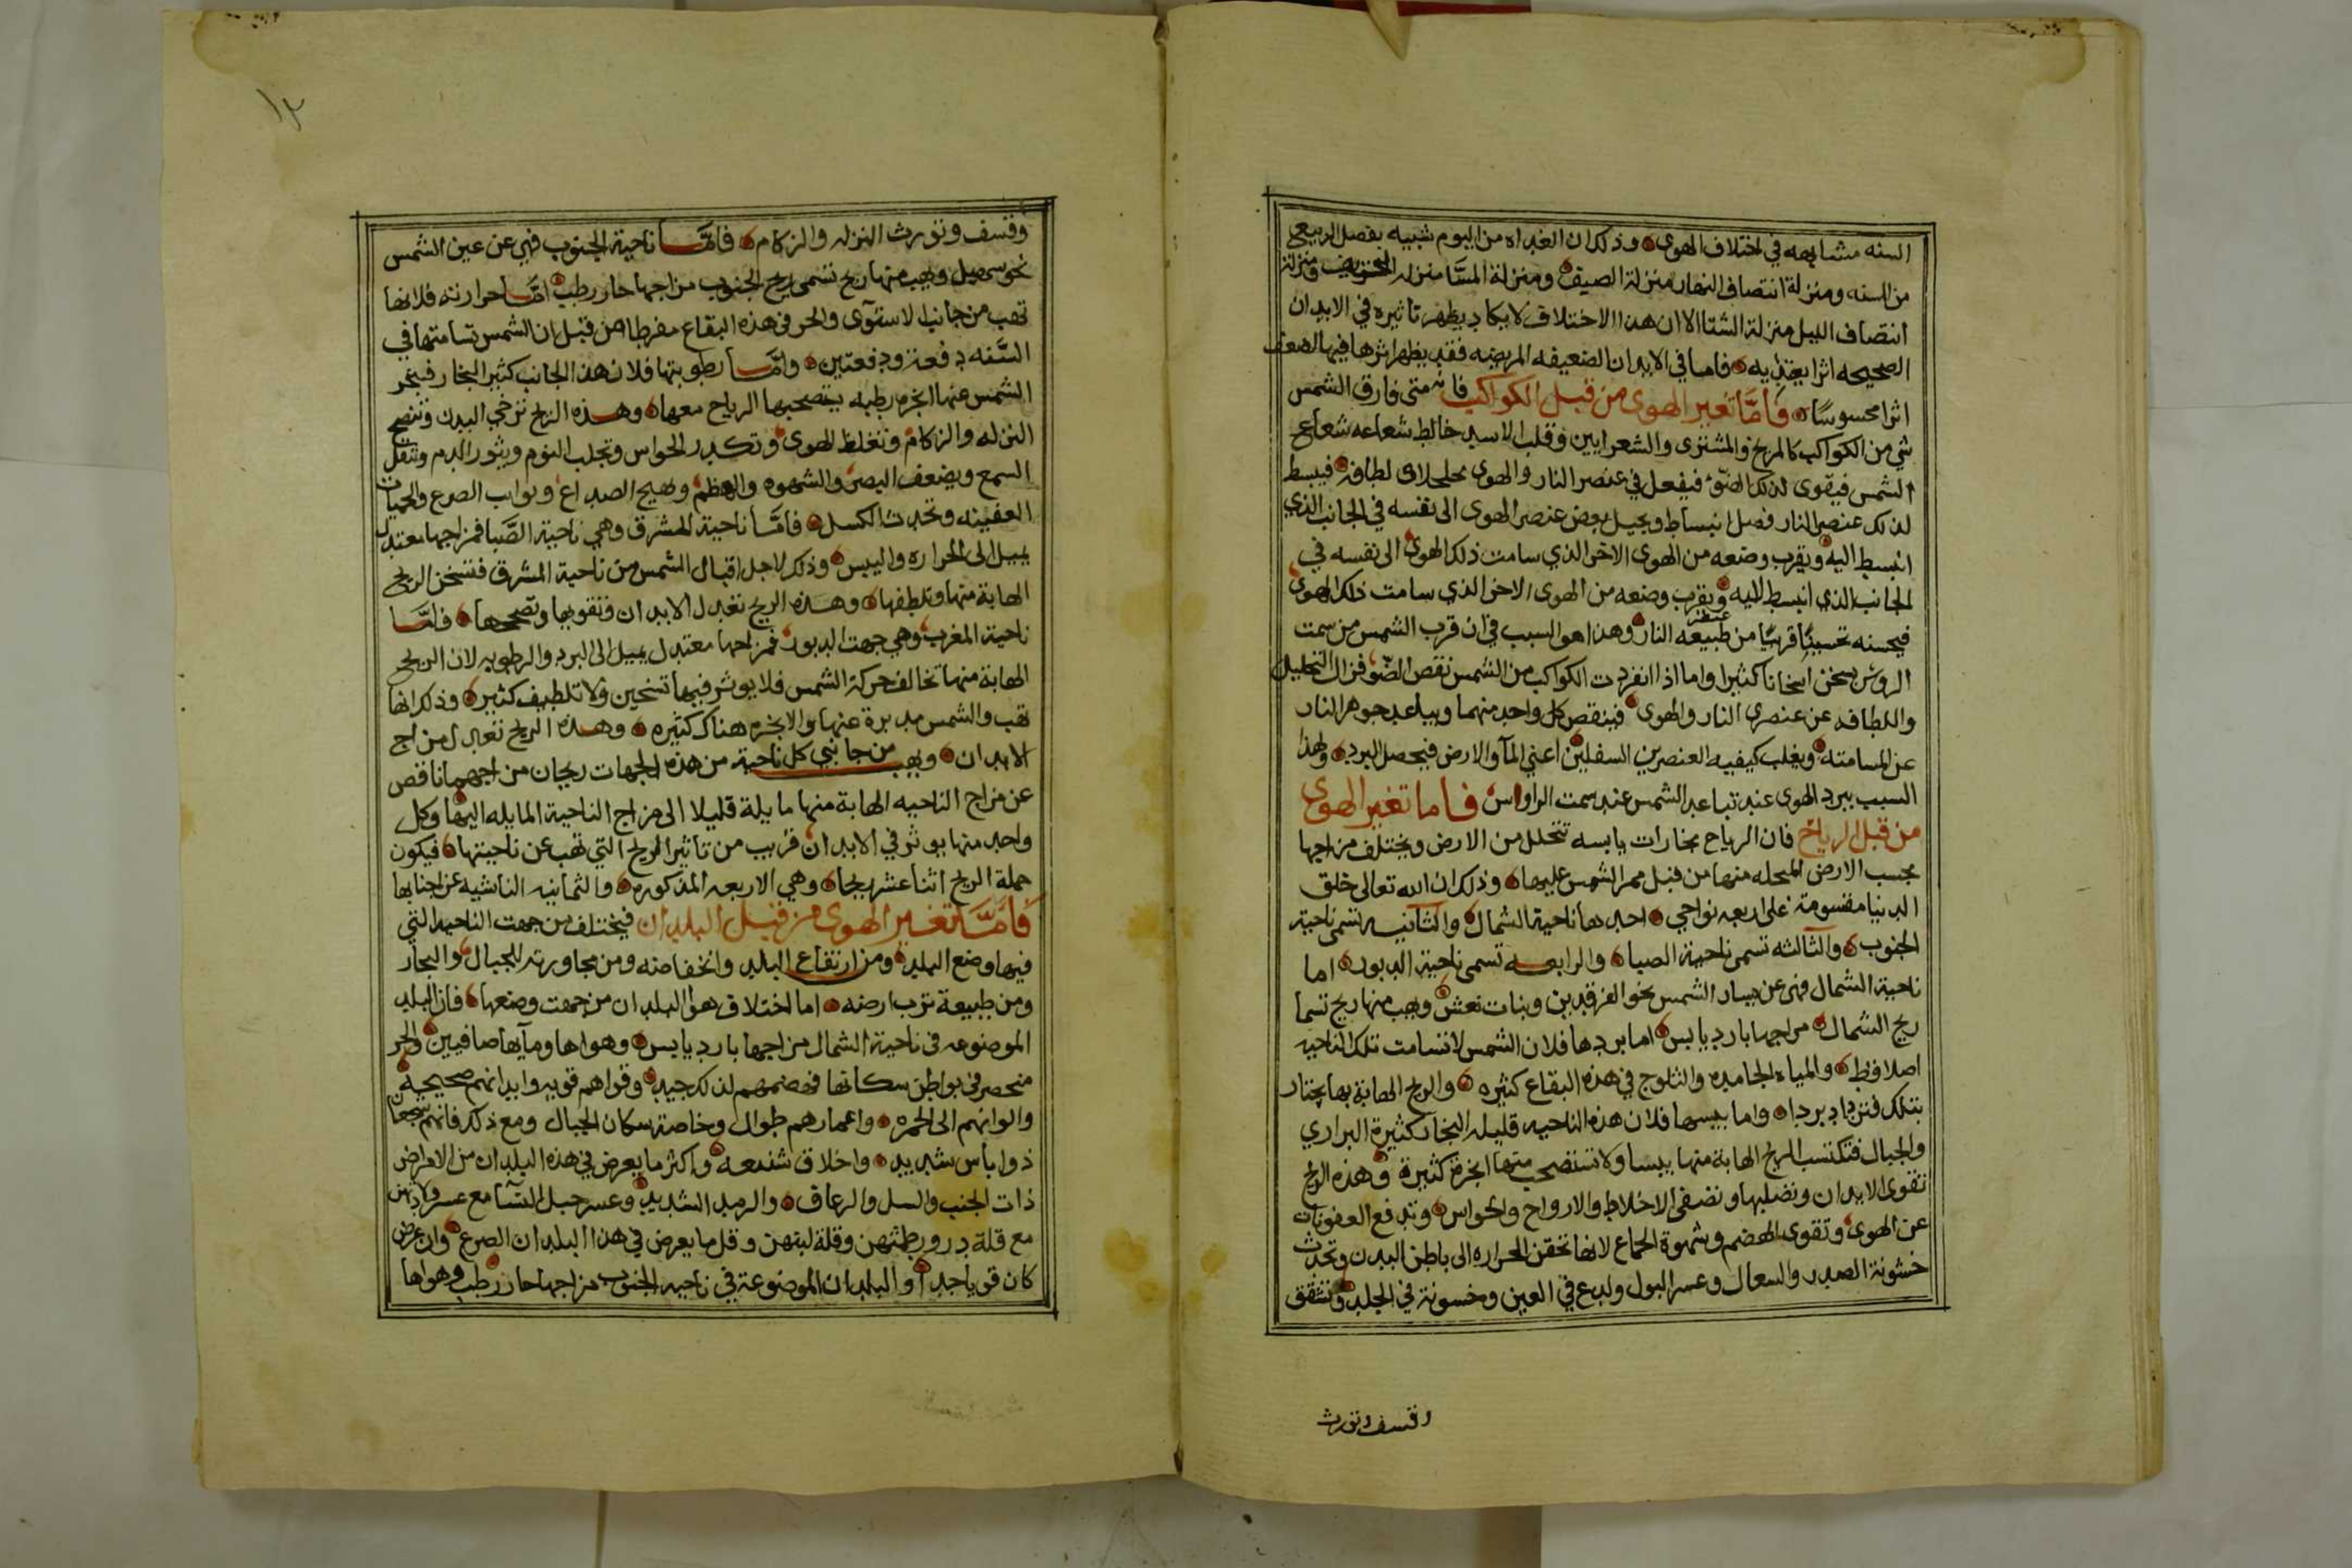 السنه مشابهه في اختلاف الهوى وذلك ان الغداه من اليوم شبيه بفصل الربيعي
من السنه ومنزلة انتصاف النهار منزلة الصيف ومنزلة المسا منزله الخريف ومنزلة
انتصاف الليل منزلة الشتا الا ان هذا الاختلاف لا يكاد يظهر تاثيره في الابدان
الصحيحه اثرا يعتد به فاما في الابدان الضعيفه المريضه فقد يظهر اثرها فيها لضعف
اثرا محسوسا فاما تغير الهوى من قبل الكواكب فانه متى فارق الشمس
شي من الكواكب كالمريخ والمشتري والشعرايين وقلب الاسد خالط شعاعه شعاع
الشمس فيقوى لذلك الضوء فيفعل في عنصر النار والهوى لطافه فيبسط
لذلك عنصر النار فضل انبساط ويحيل بعض عنصر الهوى الى نفسه في الجانب الذي
انبسط اليه ويقرب وضعه من الهوى الاخر الذي سامت ذلك الهوى الى نفسه في
الجانب الذي انبسط اليه ويقرب وضعه من الهوى الاخر الذي سامت ذلك الهوى
فيحسنه تحسينا قريبا من طبيعه عنصر النار وهذا هو السبب في ان قرب الشمس من سمت
الروس يسخن اسخانا كثيرا واما اذا انفردت الكواكب من الشمس نقص الضو فزال التحليل
واللطافه عن عنصري النار والهوى فينقص كل واحد منهما ويباعد جوهر النار
عن المسامته ويغلب كيفيه العنصرين السفلين اعني المآ والارض فيحصل البرد ولهذا
السبب يبرد الهوى عند تباعد الشمس عند سمت الراواس فاما تغير الهوى
من قبل الرياح فان الرياح بخارات يابسه تتحلل من الارض ويختلف مزاجها
بحسب الارض المتحلله منها من قبل ممر الشمس عليها وذلك ان الله تعالى خلق
الدنيا مقسومة على اربعه نواحي احدها ناحية الشمال والثانيه تسمى ناحية
الجنوب والثالثه تسمى ناحية الصبا والرابعه تسمى ناحية الدبور اما
ناحية الشمال فهى عن يسار الشمس نحو الفرقدين وبنات نعش ويهب منها ريح تسما
ريح الشمال مزاجها بارد يابس اما بردها فلان الشمس لا تسامت تلك الناحيه
اصلا وقط والمياه الجامده والثلوج في هذه البقاع كثيره والريح الهابة بها يجتاز
بتلك فتزداد بردا واما يبسها فلان هذه الناحيه قليله البخار كثيرة البراري
والجبال فتكتسب الريح الهابة منها يبسا ولا تستصحب منها ابخرة كثيرة وهذه الريح
تقوى الابدان وتصلبها وتصفى الاخلاط والارواح والحواس وتدفع العفونات
عن الهوى وتقوى الهضم وشهوة الجماع لانها تحقن الحراره الى باطن البدن وتحدث
خشونة الصدر والسعال وعسر البول ولدع في العين وخسونة في الجلد وتشقق
وقسف وتورث
١٢
وقسف وتورث النزله والزكام فاما ناحية الجنوب فهي عن عين الشمس
نحو سهيل ويهب منها ريح تسمى ريح الجنوب مزاجها حار رطب اما حرارته فلانها
تهب من جانب الاستوآى والحر في هذه البقاع مفرطا من قبل ان الشمس تسامتها في
السنه دفعة ودفعتين واما رطوبتها فلان هذا الجانب كثير البخار فيبخر
الشمس عنها ابخره رطبه يتصحبها الرياح معها وهذه الريح ترخي البدن وتنضج
النزله والزكام وتغلظ الهوى وتكدر الحواس وتجلب النوم ويثور الدم وتثقل
السمع ويضعف البصر والشهوه والهظم ويهيج الصداع ونوايب الصرع والحميات
العفينه وتحدث الكسل فاما ناحية المشرق وهي ناحية الصبا فمزاجها معتدل
يميل الى الحراره واليبس وذلك لاجل اقبال الشمس من ناحية المشرق فتسخن الريح
الهابة منها وتلطفها وهذه الريح تعدل الابدان وتقويها وتصححها فاما
ناحية المغرب وهي جهت الدبور فمزاجها معتدل يميل الى البرد والرطوبه لان الريح
الهابة منها تخالف حركة الشمس فلا يوثر فيها تسخين ولا تلطيف كثير وذلك انها
تهب والشمس مدبرة عنها والابخره هناك كثيره وهذه الريح تعدل مزاج
الابدان ويهب من جانبي كل ناحية من هذه الجهات ريحان مزاجهما ناقص
عن مزاج الناحيه الهابة منها مايلة قليلا الى مزاج الناحية المايله اليها وكل
واحد منها يوثر في الابدان قريب من تاثير الريح التي تهب عن ناحيتها فيكون
جملة الريح اثنا عشر ريحا وهي الاربعه المذكوره والثمانيه الناشيه عن اجنابها
فاما تغير الهوى من قبل البلدان فيختلف من جهت الناحيه التي
فيها وضع البلد ومن ارتفاع البلد وانخفاضه ومن مجاورته للجبال والبحار
ومن طبيعة ترب ارضه اما اختلاف هوا البلدان من جهت وضعها فان البلد
الموضوعه فى ناحية الشمال مزاجها بارد يابس وهواها ومآيها صافيين والحر
منحصر في بواطن سكانها فهضمهم لذلك جيد وقواهم قويه وابدانهم صحيحة
والوانهم الى الحمره واعمارهم طوال وخاصة سكان الجبال ومع ذلك فانهم شجعان
ذوا باس شديد واخلاق شنعه واكثر ما يعرض في هذه البلدان من الامراض
ذات الجنب والسل والرعاف والرمد الشديد وعسر حبل النسا مع عسر ولادتهن
مع قلة درور طمثهن وقلة لبنهن وقل ما يعرض في هذا البلدان الصرع وان عرض
كان قويا جدا والبلدان الموضوعة في ناحيه الجنوب مزاجها حار رطب وهواها